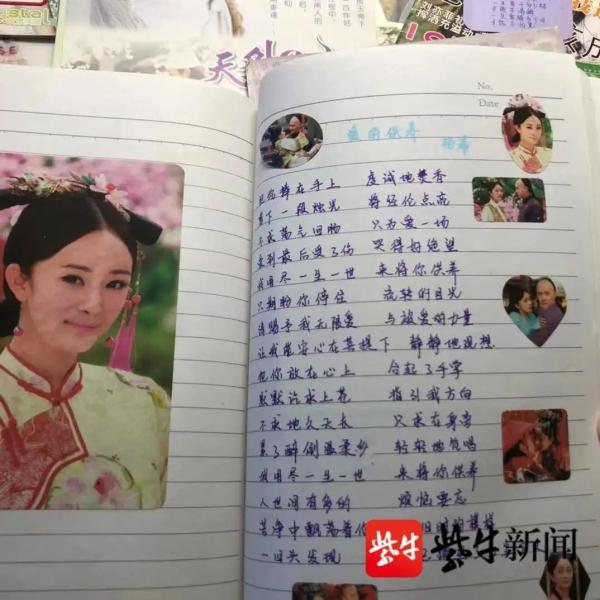 天外
刘亦菲
No.
Date
爱的供养
杨幂
你捧在手上 虔诚地焚香
下一段烛光 将经纶点亮
不求荡气回肠 只为爱一场
爱到最后受了伤 哭得好绝望
我用尽一生一世 来将你供养
只期盼你停住 流转的目光
请赐予我无限爱 与被爱的力量
让我能安心在菩提下 静静地观想
把你放在心上 合起了手掌
默默许求上苍 指引我方向
不求地久天长 只求在身旁
累了醉倒温柔乡 轻轻地 唱
我用尽一生一世 来将你供养
人世间有多的 烦恼要忘
苦 中飘荡着你 旧时的模样
一回头发现
紫牛 紫牛新闻